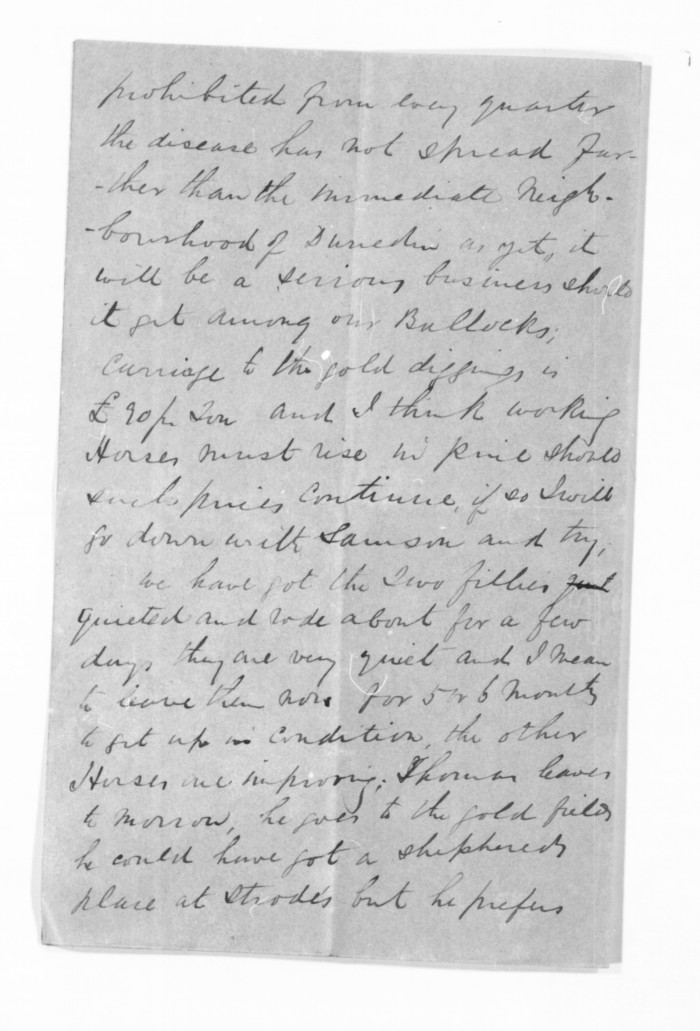 prohibited from every quarter
the disease has not spread fur-
-ther than the immediate Neigh-
-bourhood of Dunedin as yet, it
will be a serious business should
it get among our Bullocks;
Carriage to the gold diggings is
£90 pr Ton and I think working
Horses must rise in price should
such prices Continue, if so I will
go down with Samson and try,
we have got the two fillies
quieted and rode about for a few
days they are very quiet and I mean
to leave them now for 5 or 6 Months
to get up in Condition, the other
Horses are improving; Thomas leaves
to morrow, he goes to the gold fields
he could have got a shepherds
place at Strode's but he prefers